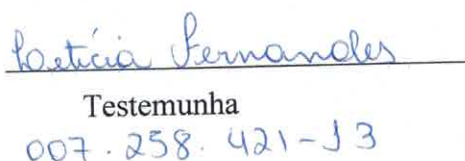 Laetícia Fernandes
Testemunha
007.258.421-13